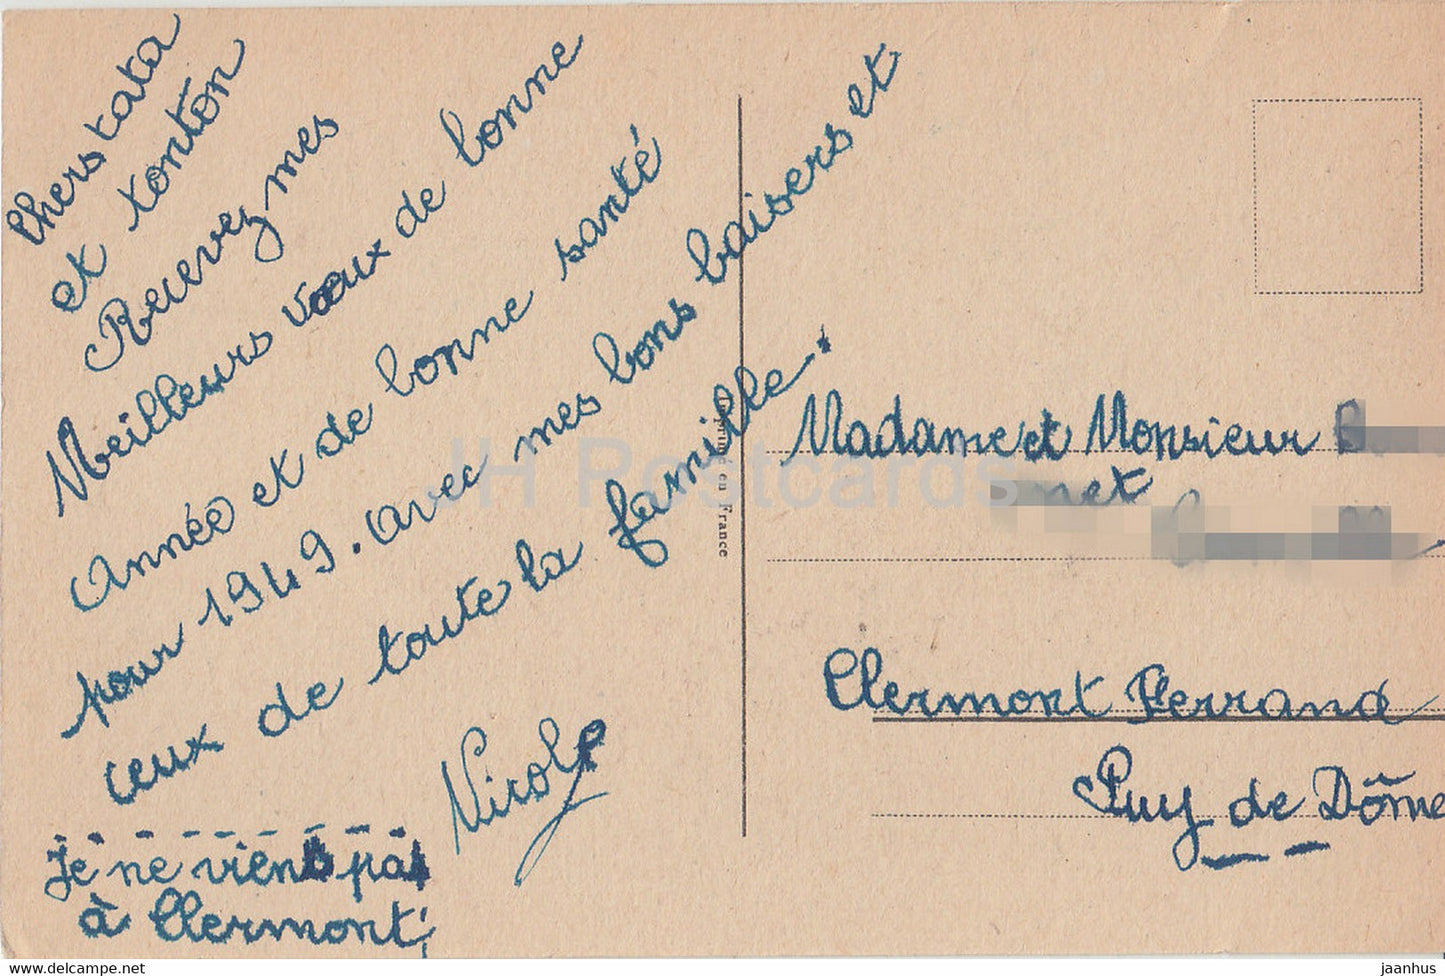 Chers tata
et tonton
Recevez mes
Meilleurs vœux de bonne
Année et de bonne santé
pour 1949. avec mes bons baisers et
ceux de toute la famille.
Nicole
Je ne viens pas
à Clermont,
Imprimé en France
Madame et Monsieur
Clermont Ferrand
Puy de Dôme
JH Postcards
www.delcampe.net
jaanhus